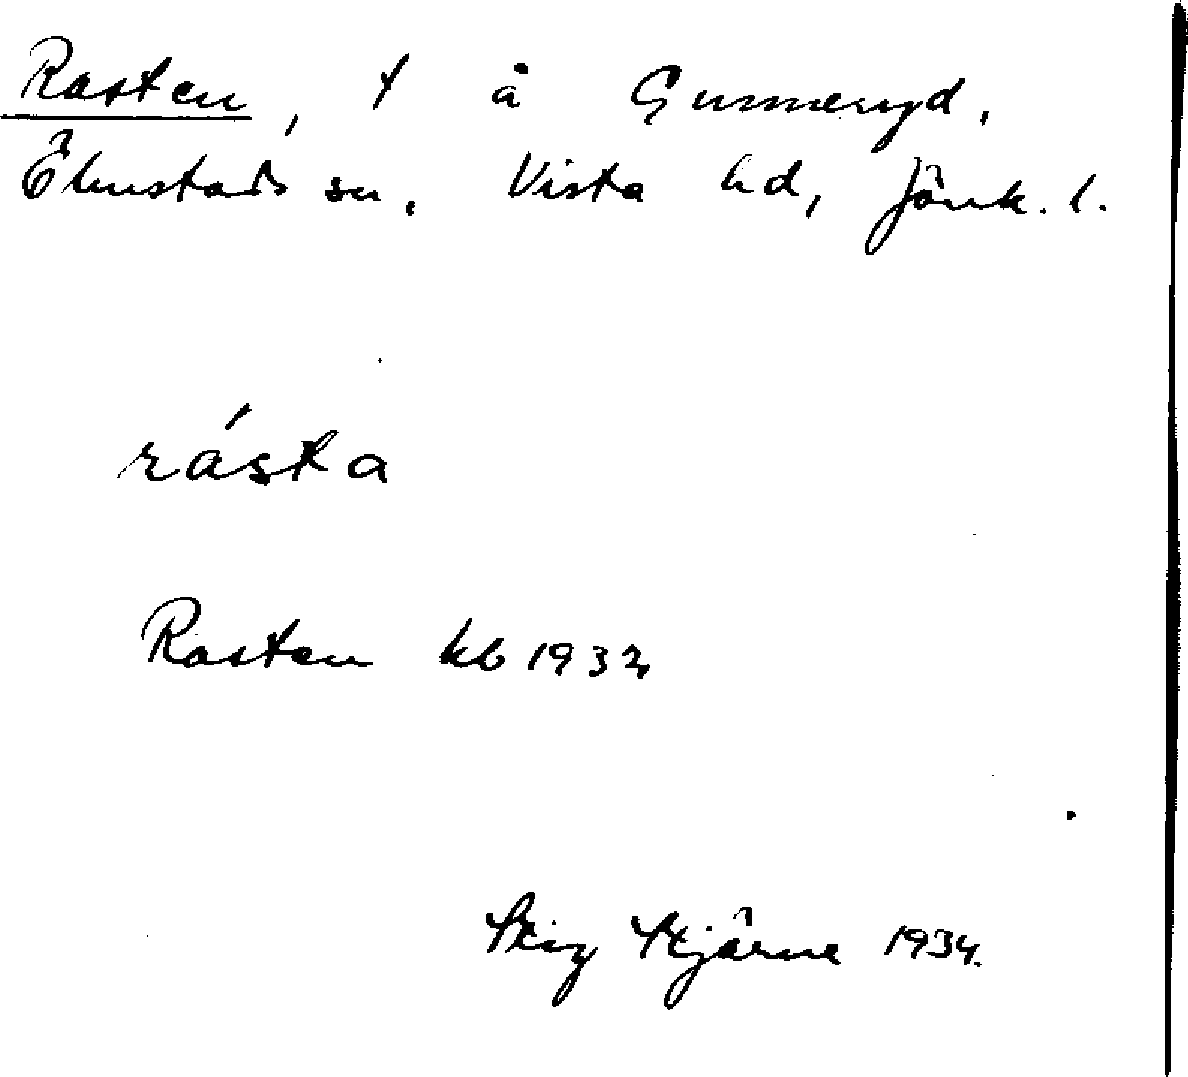 Rasten, t å Gunneryd.
Ölmstads sn. Vista hd, Jönk. l.
rásta
Rasten kb 1932
Stig Stjärne 1934.